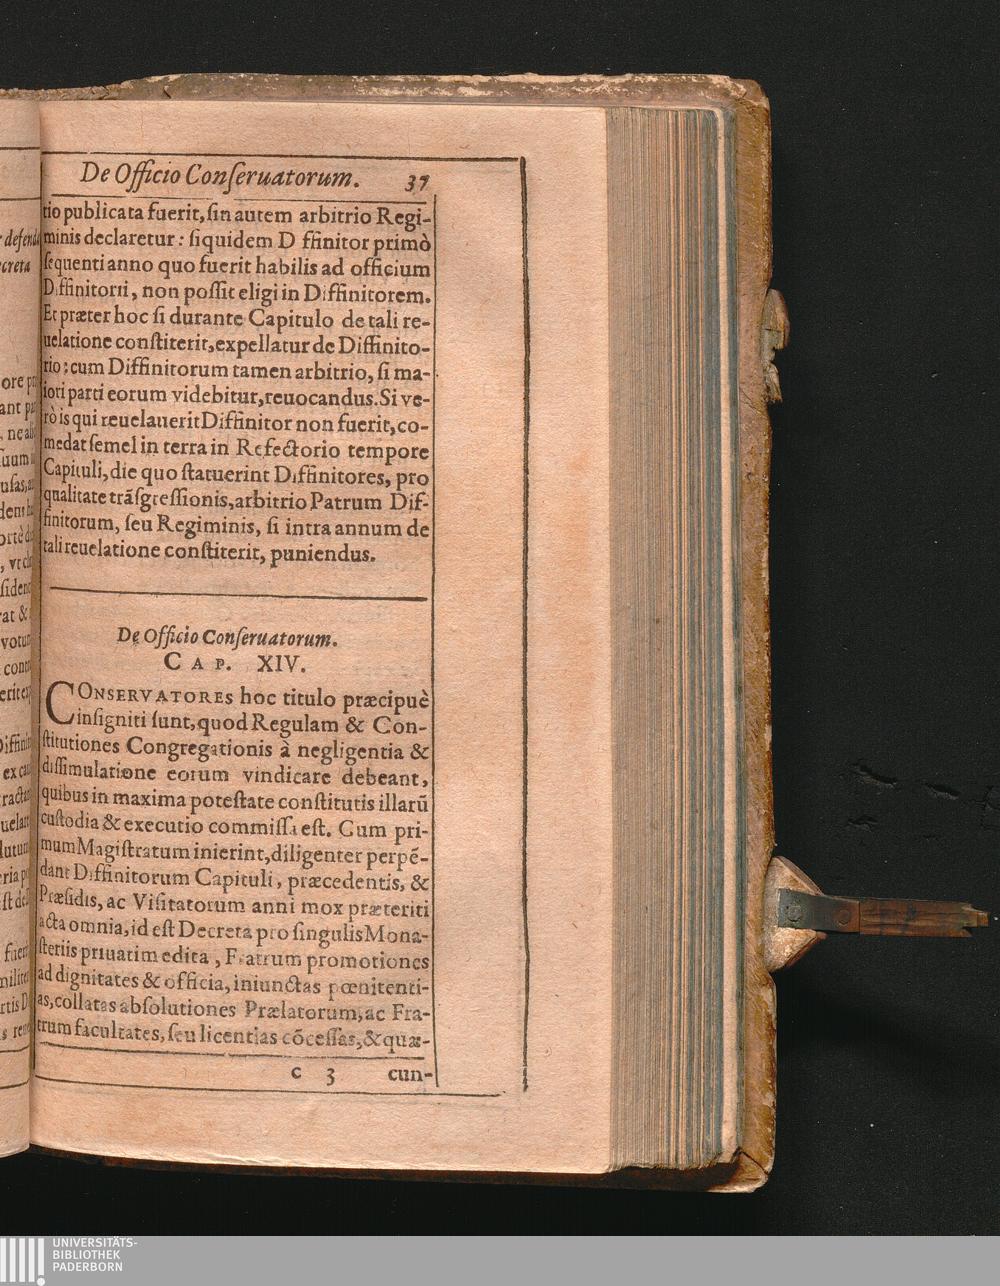 De Officio Conſeruatorum. 37
tio publicata fuerit, ſin autem arbitrio Regi-
minis declaretur: ſiquidem D ffinitor primò
ſequenti anno quo fuerit habilis ad officium
Diffinitorii, non poſſit eligi in Diffinitorem.
Et præter hoc ſi durante Capitulo de tali re-
uelatione conſtiterit, expellatur de Diffinito-
rio: cum Diffinitorum tamen arbitrio, ſi ma-
iori parti eorum videbitur, reuocandus. Si ve-
rò is qui reuelauerit Diffinitor non fuerit, co-
medat ſemel in terra in Refectorio tempore
Capituli, die quo ſtatuerint Diffinitores, pro
qualitate trãſgreſſionis, arbitrio Patrum Dif-
finitorum, ſeu Regiminis, ſi intra annum de
tali reuelatione conſtiterit, puniendus.
De Officio Conſeruatorum.
CAP. XIV.
CONSERVATORES hoc titulo præcipuè
inſigniti ſunt, quod Regulam & Con-
ſtitutiones Congregationis à negligentia &
diſſimulatione eorum vindicare debeant,
quibus in maxima poteſtate conſtitutis illarũ
cuſtodia & executio commiſſa eſt. Cum pri-
mum Magiſtratum inierint, diligenter perpẽ-
dant Diffinitorum Capituli, præcedentis, &
Præſidis, ac Viſitatorum anni mox præteriti
acta omnia, id eſt Decreta pro ſingulis Mona-
ſteriis priuatim edita, Fratrum promotiones
ad dignitates & officia, iniunctas pœnitenti-
as, collatas abſolutiones Prælatorum, ac Fra-
trum facultates, ſeu licentias cõceſſas, & quæ-
c 3 cun-
UNIVERSITÄTS-
BIBLIOTHEK
PADERBORN